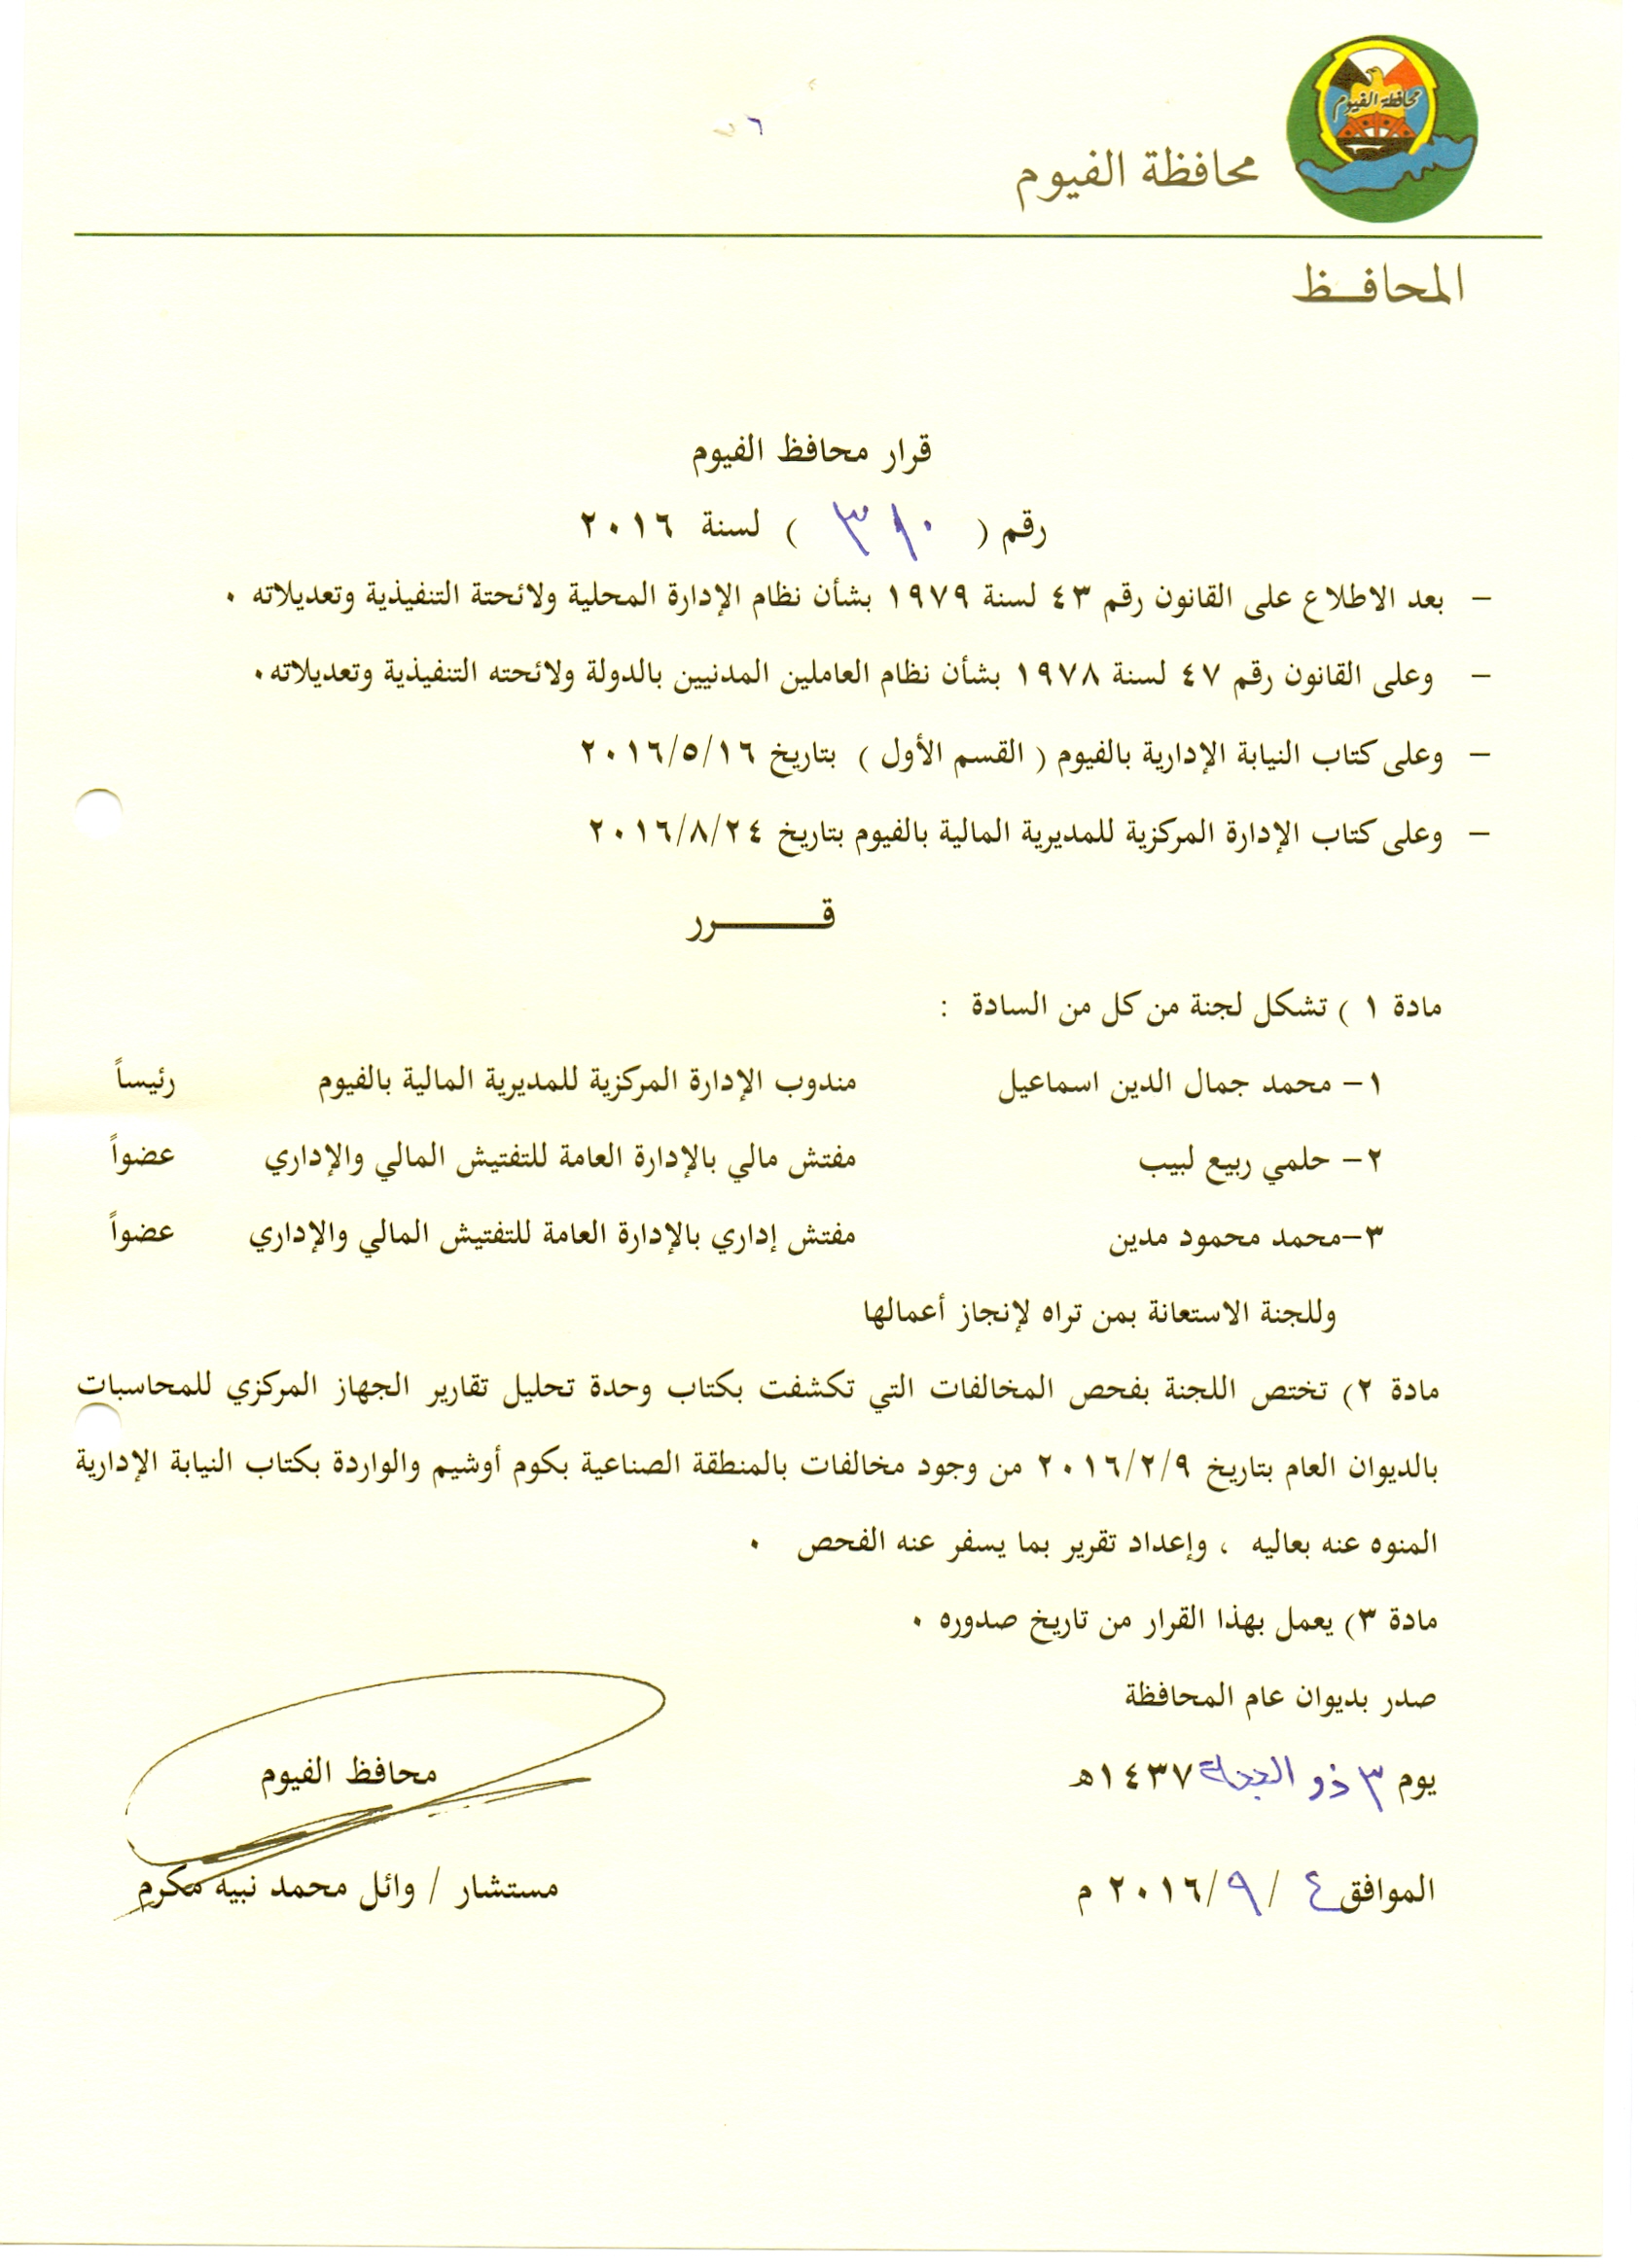 محافظة الفيوم
محافظة الفيوم
المحافظ
قرار محافظ الفيوم
رقم ( ٣١٠ ) لسنة ٢٠١٦
– بعد الاطلاع على القانون رقم ٤٣ لسنة ١٩٧٩ بشأن نظام الإدارة المحلية ولائحتة التنفيذية وتعديلاته ٠
– وعلى القانون رقم ٤٧ لسنة ١٩٧٨ بشأن نظام العاملين المدنيين بالدولة ولائحته التنفيذية وتعديلاته٠
– وعلى كتاب النيابة الإدارية بالفيوم ( القسم الأول ) بتاريخ ٢٠١٦/٥/١٦
– وعلى كتاب الإدارة المركزية للمديرية المالية بالفيوم بتاريخ ٢٠١٦/٨/٢٤
قـــــــرر
مادة ١ ) تشكل لجنة من كل من السادة :
١– محمد جمال الدين اسماعيل مندوب الإدارة المركزية للمديرية المالية بالفيوم رئيساً
٢– حلمي ربيع لبيب مفتش مالي بالإدارة العامة للتفتيش المالي والإداري عضواً
٣–محمد محمود مدين مفتش إداري بالإدارة العامة للتفتيش المالي والإداري عضواً
وللجنة الاستعانة بمن تراه لإنجاز أعمالها
مادة ٢) تختص اللجنة بفحص المخالفات التي تكشفت بكتاب وحدة تحليل تقارير الجهاز المركزي للمحاسبات
بالديوان العام بتاريخ ٢٠١٦/٢/٩ من وجود مخالفات بالمنطقة الصناعية بكوم أوشيم والواردة بكتاب النيابة الإدارية
المنوه عنه بعاليه ، وإعداد تقرير بما يسفر عنه الفحص ٠
مادة ٣) يعمل بهذا القرار من تاريخ صدوره ٠
صدر بديوان عام المحافظة
يوم ٣ ذو الحجة ١٤٣٧هـ
محافظ الفيوم
الموافق ٤ / ٩ /٢٠١٦ م
مستشار / وائل محمد نبيه مكرم